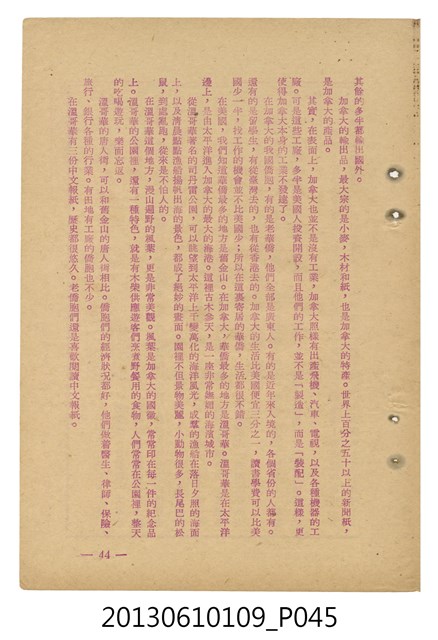 其餘的多半都輸出國外。
加拿大的輸出品，最大宗的是小麥，木材和紙，也是加拿大的特產。世界上百分之五十以上的新聞紙，
是加拿大的產品。
其實，在表面上，加拿大也並不是沒有工業，加拿大照樣有出產飛機、汽車、電視，以及各種機器的工
廠。可是這些工廠，多半是美國人投資開設，而且他們的工作，並不是「製造」，而是「裝配」。這樣，更
使得加拿大本身的工業不發達了。
在加拿大的我國僑胞，有的是老華僑，他們全部是廣東人。有的是近年來入境的，各個省份的人都有。
還有的是留學生，有從臺灣去的，也有從香港去的。加拿大的生活比美國便宜三分之一，讀書學費可以比美
國少一半，找工作的機會並不比美國少；所以在這裏寄居的華僑，生活都很不錯。
在美國，我們知道華僑最多的地方是舊金山。在加拿大，華僑最多的地方是溫哥華。溫哥華是在太平洋
邊上，是由太平洋進入加拿大的最大的海港。這裡古木參天，是一座非常嫵媚的海濱城市。
從溫哥華著名的司丹雷公園，可以眺望到太平洋上千變萬化的海洋風光，成羣的漁船在落日夕照的海面
上，以及清晨點點漁船揚帆出海的景色，都成了絕妙的畫面。園裡不但景物美麗，小動物很多，長尾巴的松
鼠，到處亂跑，從來是不怕人的。
在溫哥華這個地方，漫山遍野的風葉，更是非常美觀。風葉是加拿大的國徽，常常印在每一件的紀念品
上。溫哥華的公園裡，還有一種特色，就是有木柴供應遊客們烹煮野餐用的食物，人們常常在公園裡，整天
的吃喝遊玩，樂而忘返。
溫哥華的唐人街，可以和舊金山的唐人街相比。僑胞們的經濟狀況都好，他們做着醫生、律師、保險、
旅行、銀行各種的行業。有田地有工廠的僑胞也不少。
在溫哥華有三份中文報紙，歷史都很悠久。老僑胞們還是喜歡閱讀中文報紙。
— 44 —
20130610109_P045